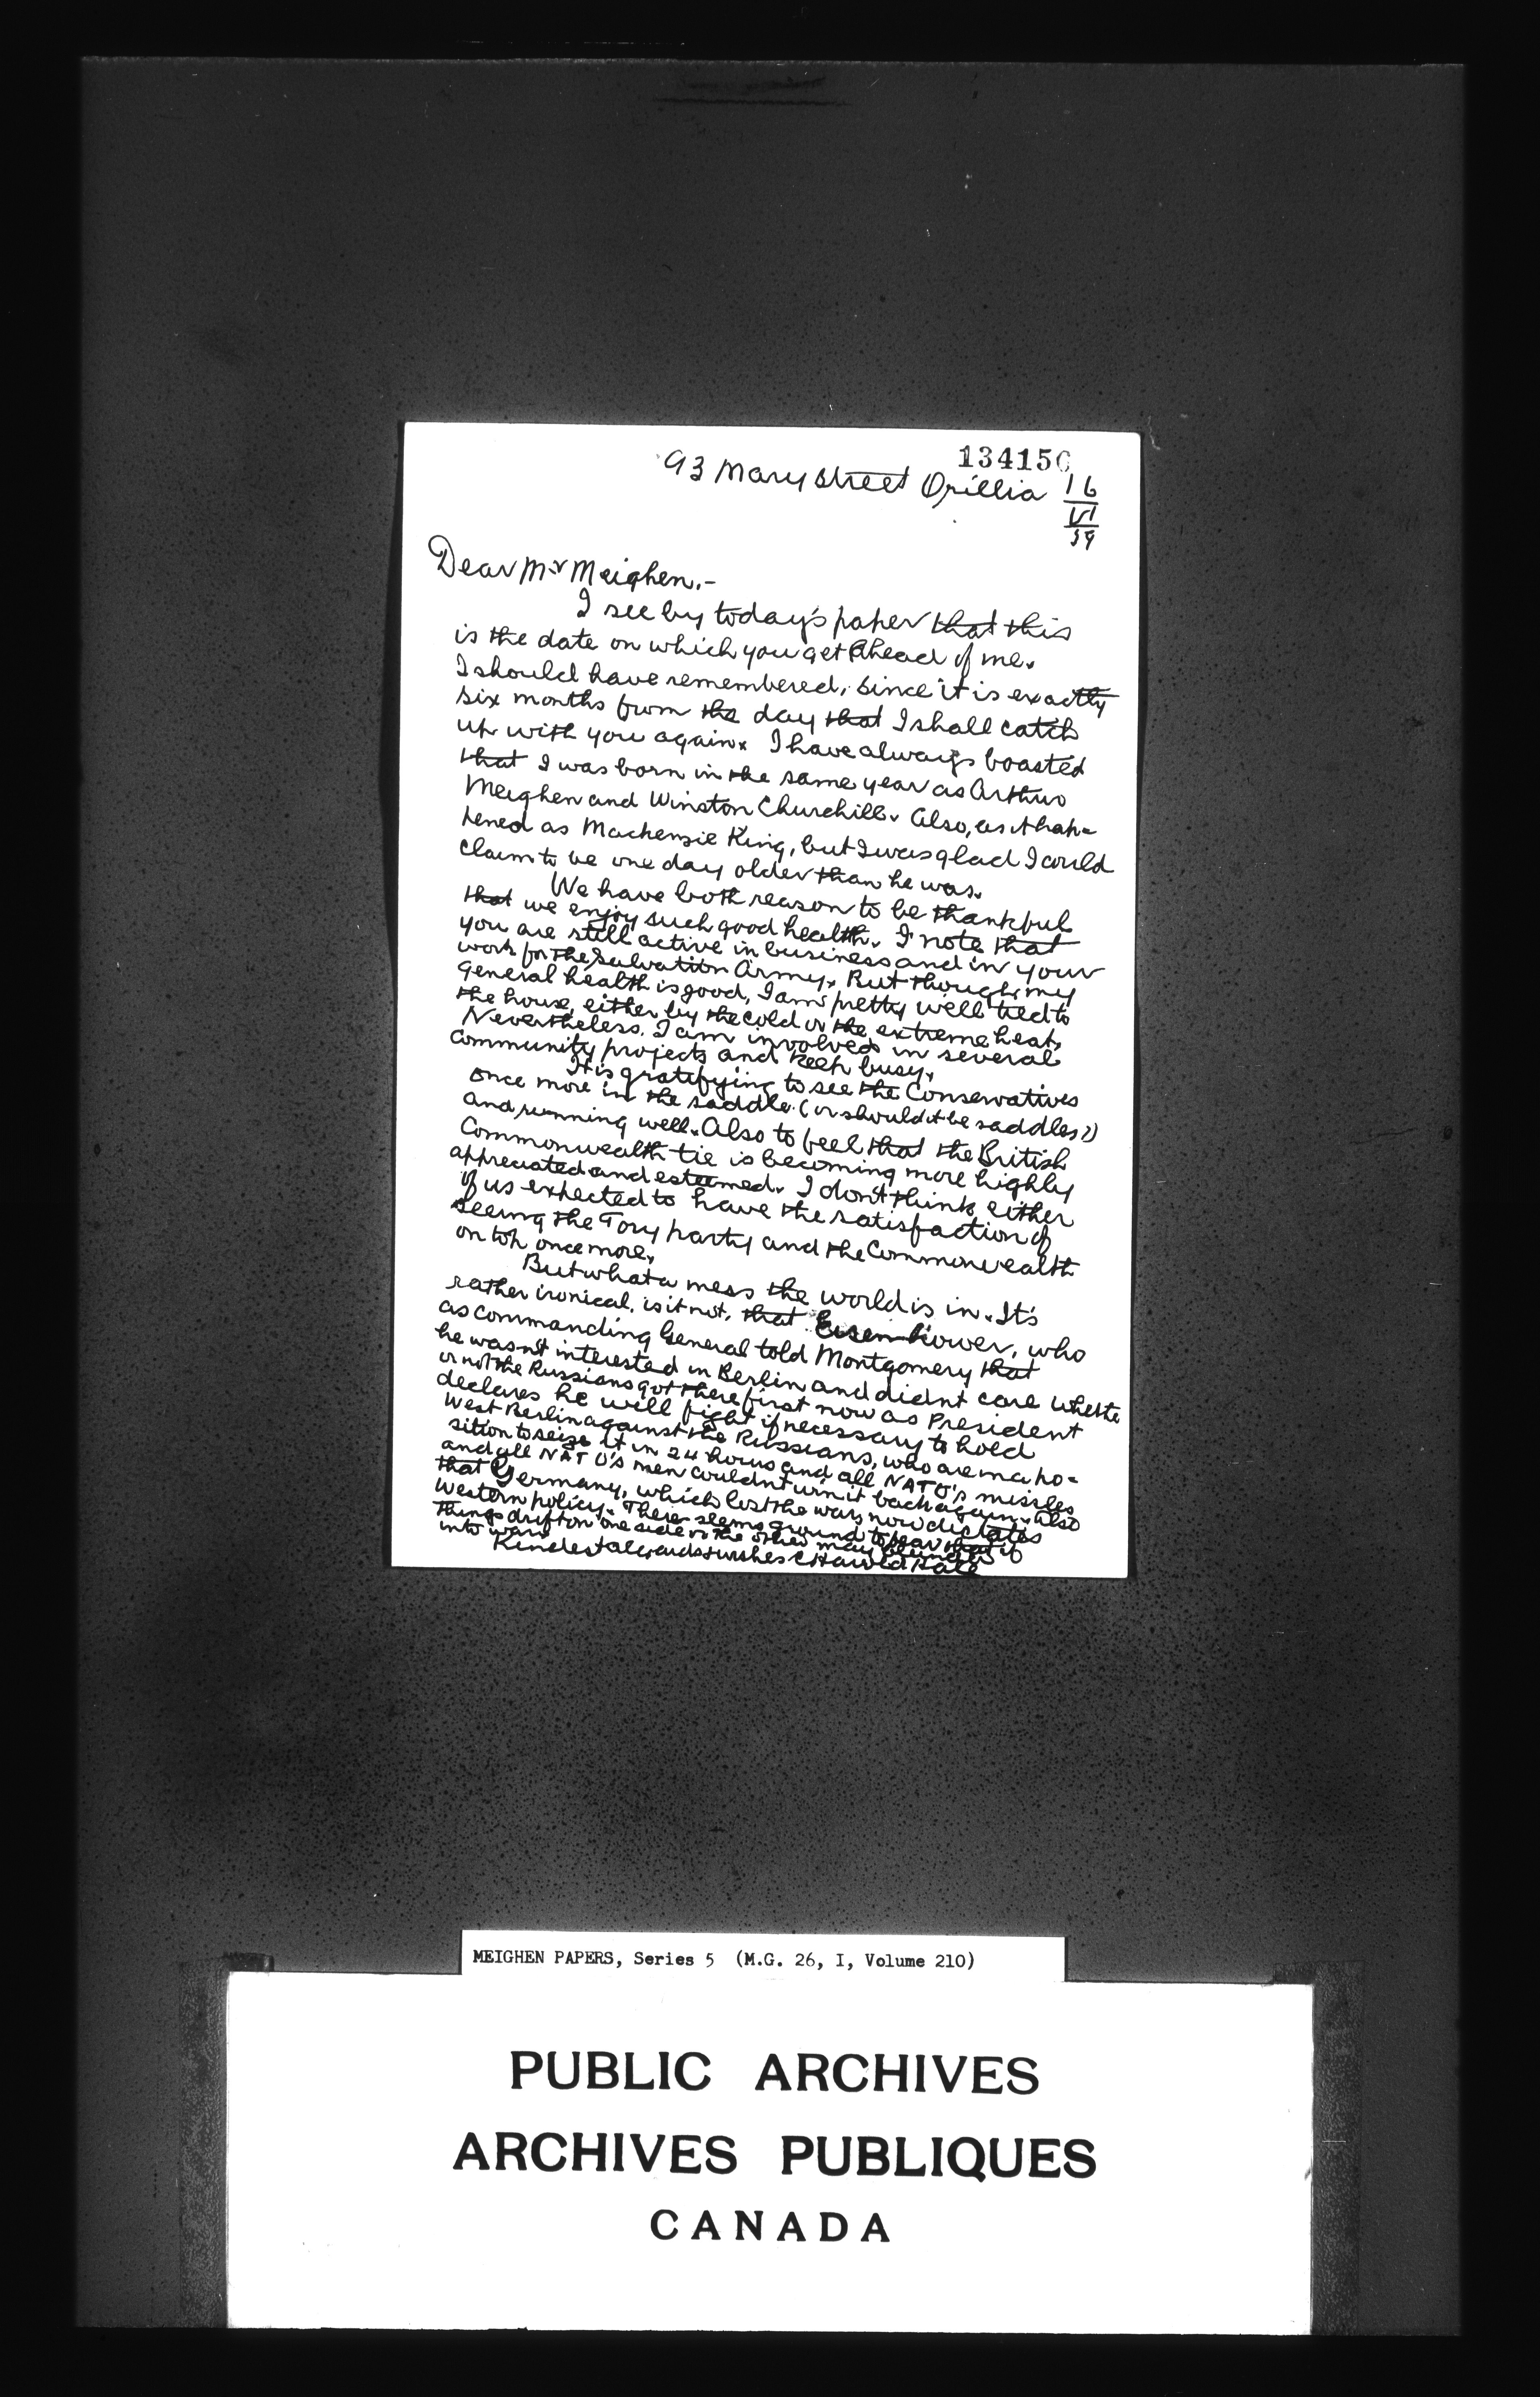 134150
93 Mary Street Orillia 16
VI
59
Dear Mr Meighen.-
I see by today's paper that this
is the date on which you get ahead of me.
I should have remembered, since it is exactly
six months from the day that I shall catch
up with you again. I have always boasted
that I was born in the same year as Arthur
Meighen and Winston Churchill. Also, as it hap-
pened as Mackenzie King, but I was glad I could
claim to be one day older than he was.
We have both reason to be thankful
that we enjoy such good health. I note that
you are still active in business and in your
work for the Salvation Army. But though my
general health is good, I am pretty well tied to
the house, either by the cold or the extreme heat.
Nevertheless, I am involved in several
community projects and keep busy.
It is gratifying to see the Conservatives
once more in the saddle (or should it be saddles?)
and running well. Also to feel that the British
Commonwealth tie is becoming more highly
appreciated and esteemed. I don't think either
of us expected to have the satisfaction of
seeing the Tory party and the Commonwealth
on top once more.
But what a mess the world is in. It's
rather ironical, is it not, that Eisenhower, who
as commanding General told Montgomery that
he wasn't interested in Berlin and didnt care whethe
or not the Russians got there first now as President
declares he will fight if necessary to hold
West Berlin against the Russians, who are in a po-
sition to seize it in 24 hours and all NATO's missiles
and all NATO's men couldn't win it back again. Also
that Germany, which lost the war, now dictates
Western policy. There seems ground to fear that if
things drift on one side or the other may blunder
into war.
Kindest regards & wishes C Harold Hale
MEIGHEN PAPERS, Series 5 (M.G. 26, I, Volume 210)
PUBLIC ARCHIVES
ARCHIVES PUBLIQUES
CANADA